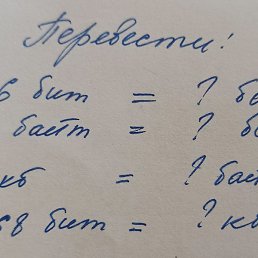 Перевести:
6 бит = ? б
байт = ? б
кб = ? бай
68 бит = ? к